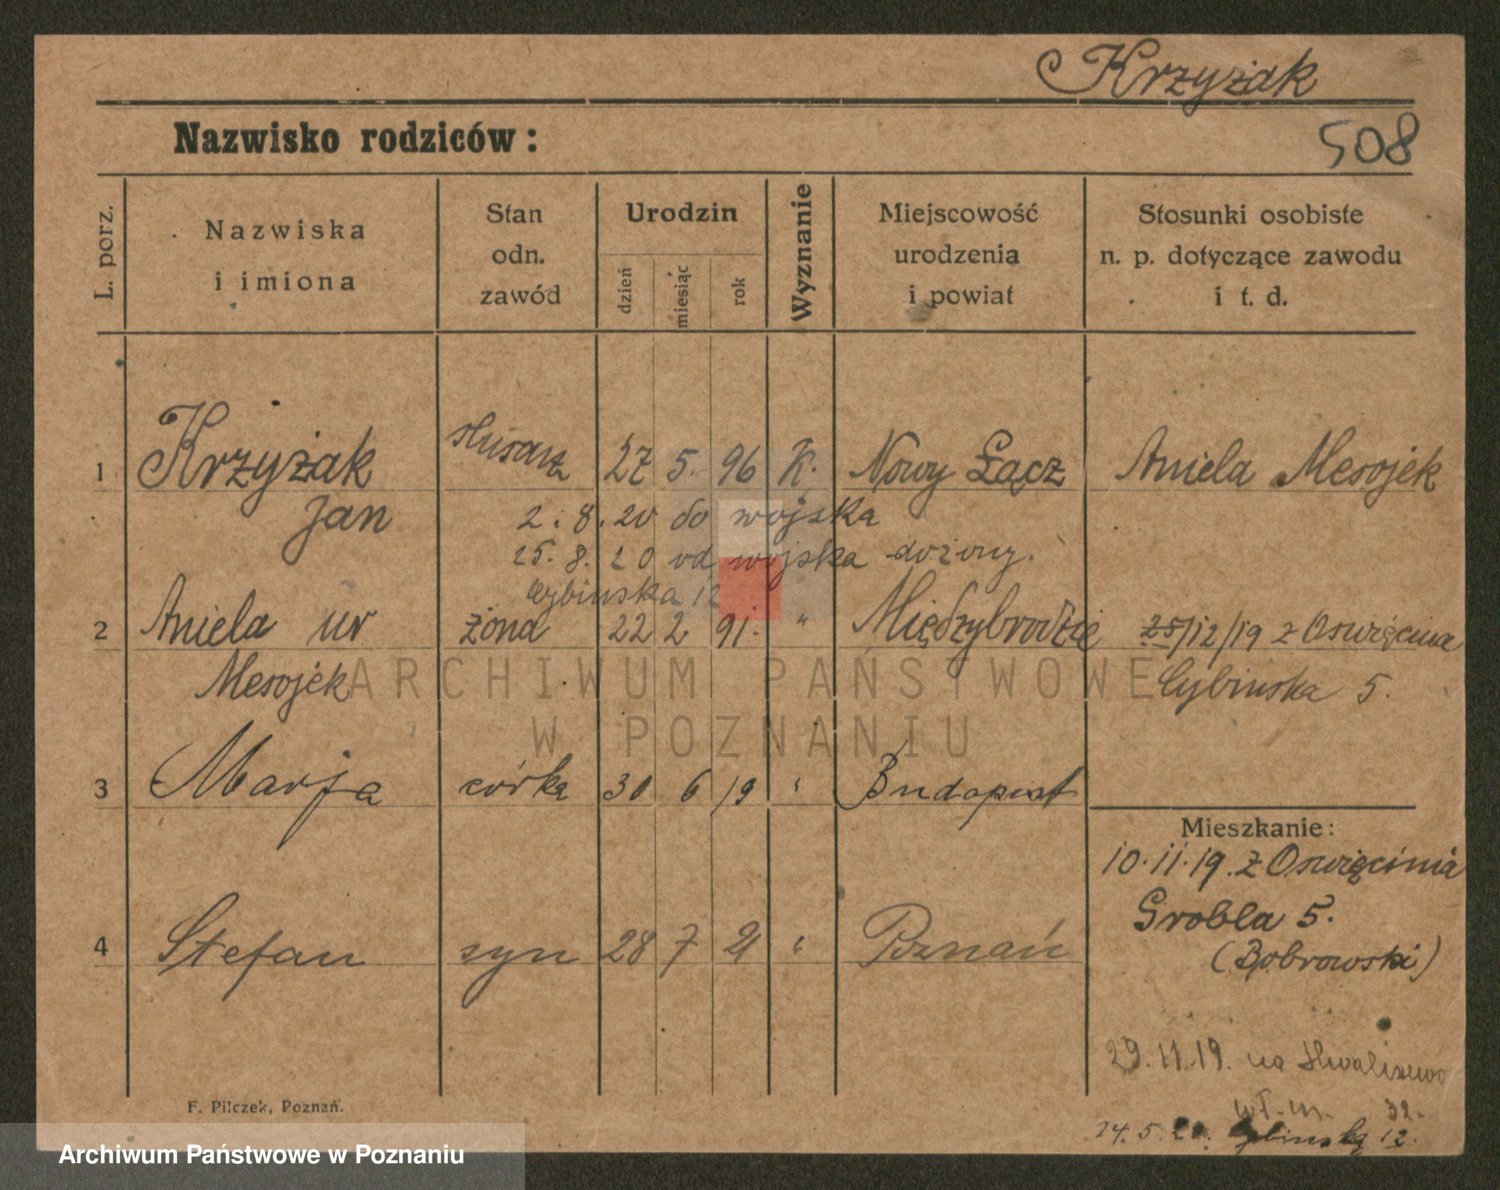 Krzyżak
Nazwisko rodziców:
508
L. porz.
Nazwiska
i imiona
Stan
odn.
zawód
Urodzin
dzień
miesiąc
rok
Wyznanie
Miejscowość
urodzenia
i powiat
Stosunki osobiste
n. p. dotyczące zawodu
i t. d.
1 Krzyżak ślusarz 27 5. 96 K. Nowy Sącz Aniela Mesojék
Jan 2. 8. 20 do wojska
25. 8. 20 od wojska
Cybinska 12
2 Aniela ur żona 22 2 91. " Międzybrodzie 25/12/19 z Oswięcima
Mesojék Cybińska 5.
ARCHIWUM PAŃSTWOWE
W POZNANIU
3 Marja córka 30 6 19 " Budapest
Mieszkanie:
10.11.19. z Oswięcimia
Grobla 5.
(Bobrowski)
4 Stefan syn 28 7 21 " Poznań
29.11.19. na
32.
14. 5. 20. Cybinska 12.
F. Pilczek, Poznań.
Archiwum Państwowe w Poznaniu